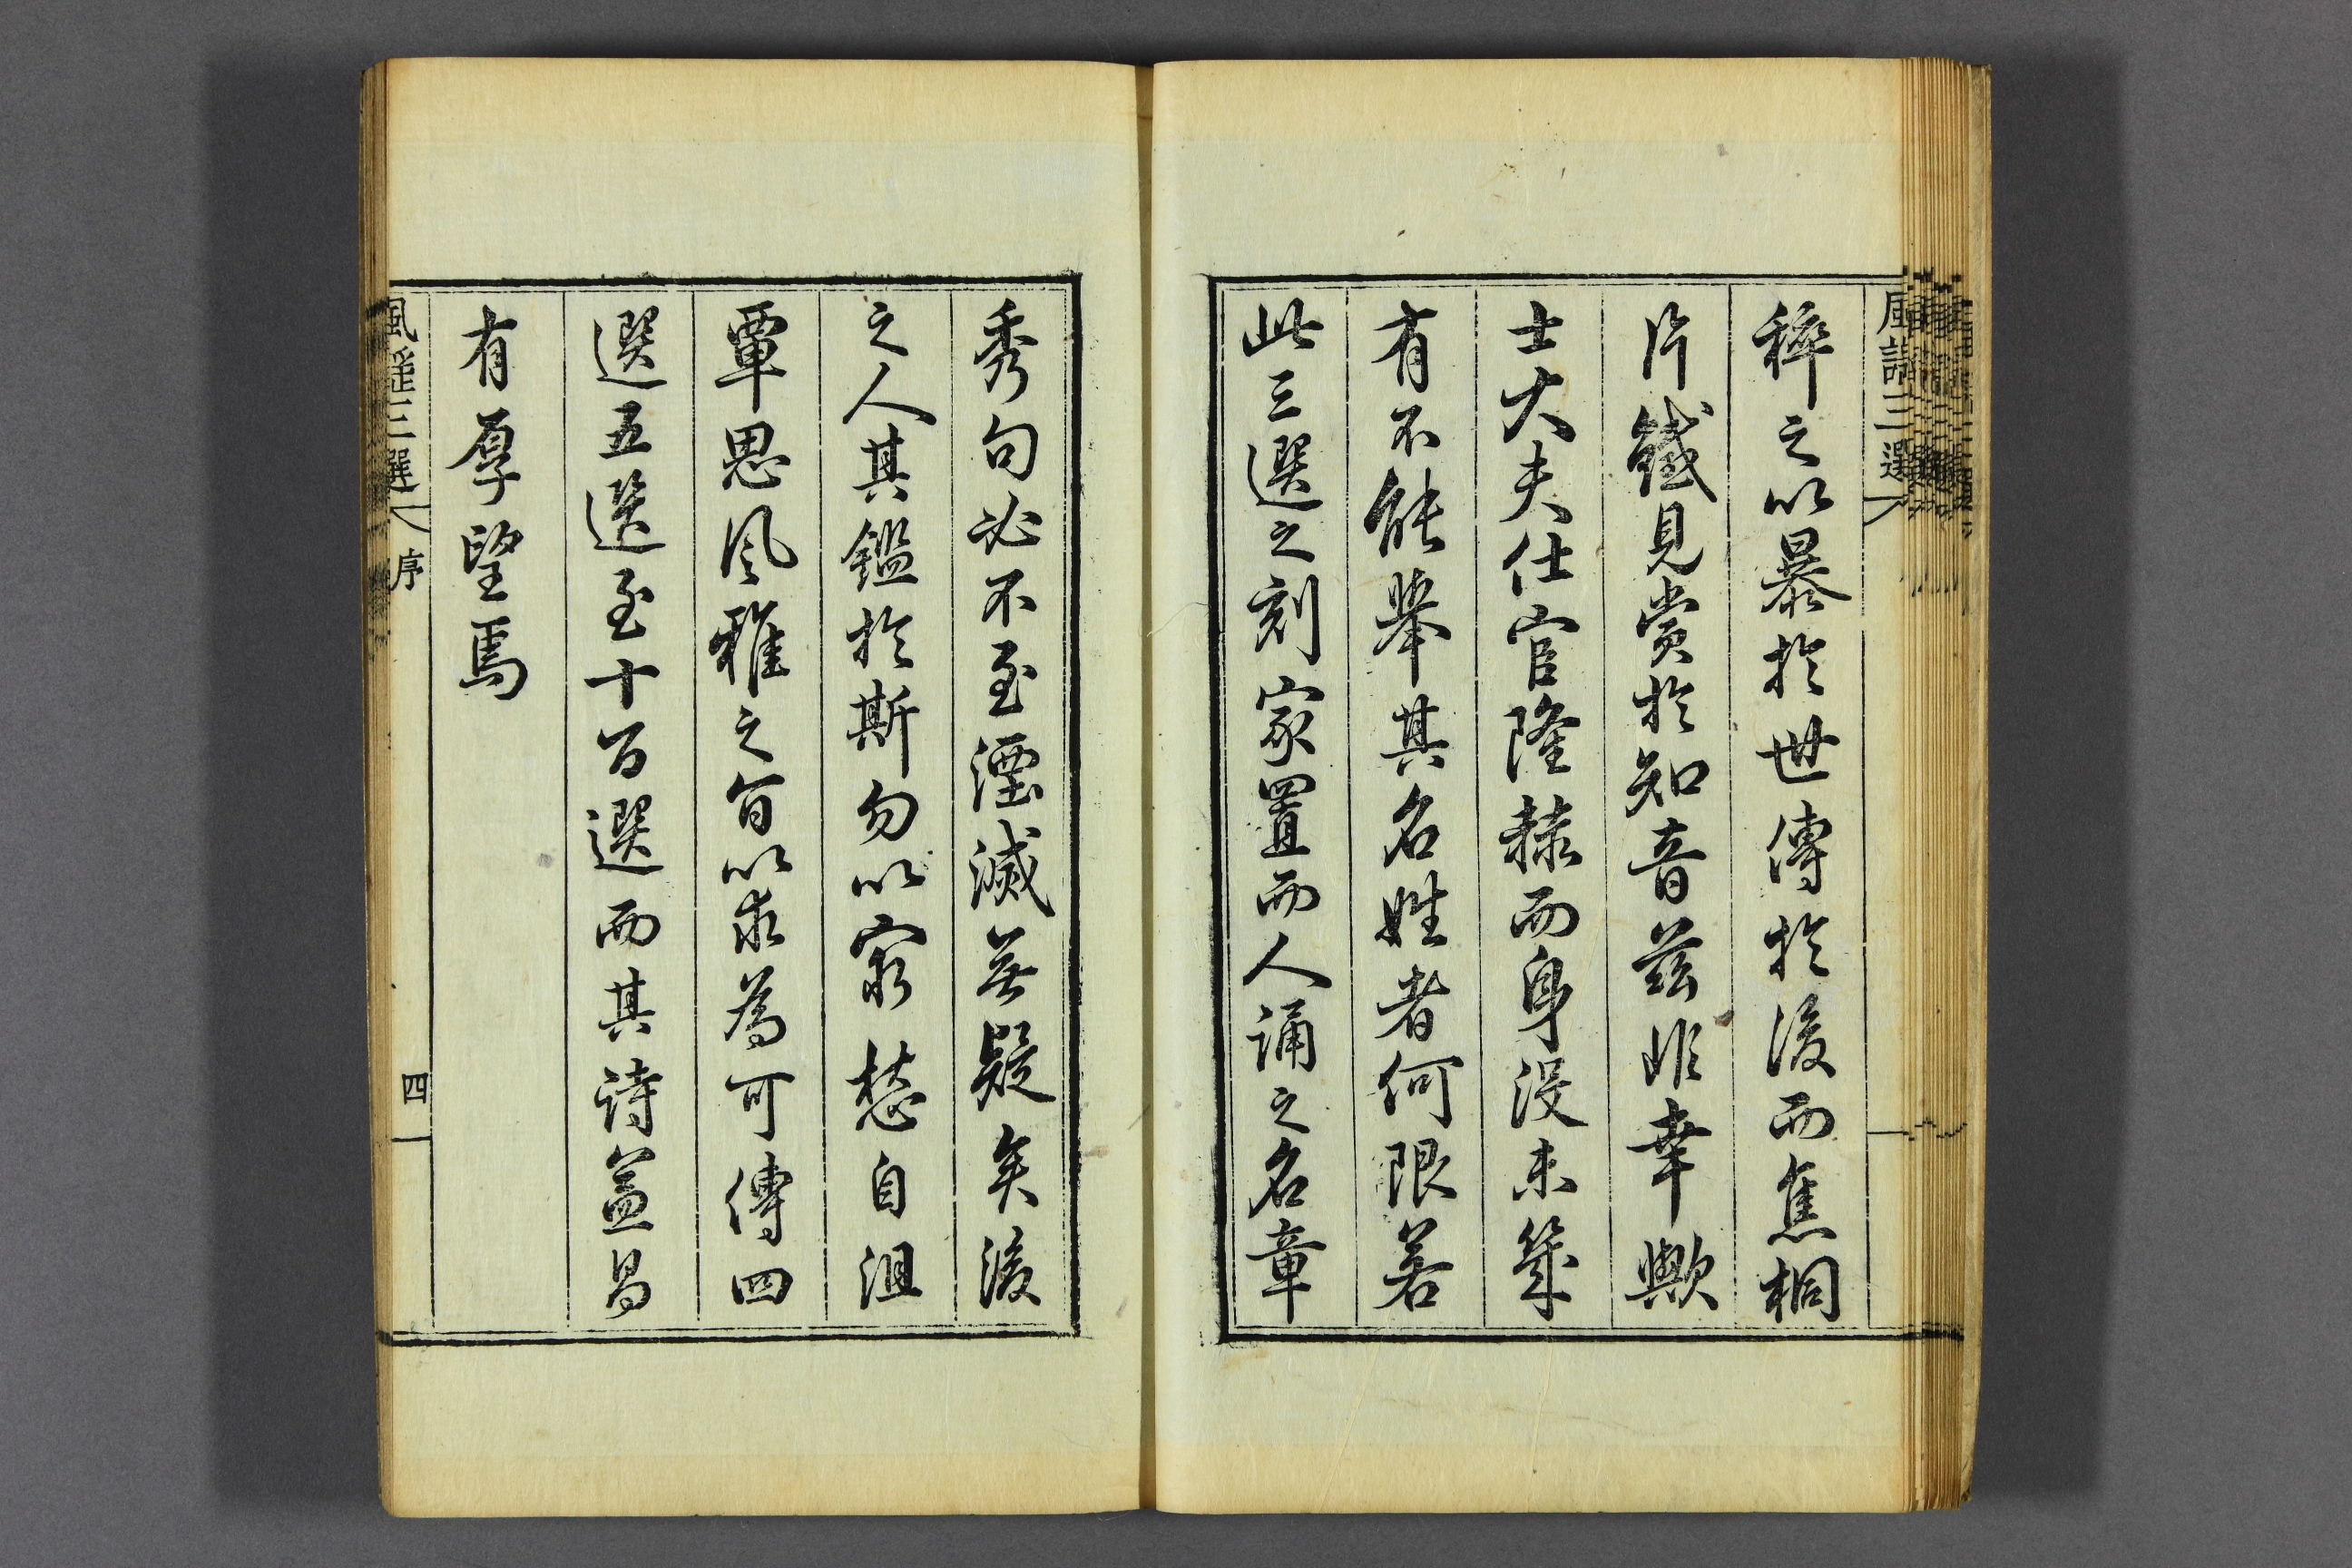 稡之以暴於世傳於後而焦桐
片鐵見賞於知音茲非幸歟
士大夫仕宦隆赫而身沒未幾
有不能舉其名姓者何限若
此三選之刻家置而人誦之名章
秀句必不至湮滅無疑矣後
之人其鑑於斯勿以窮愁自沮
覃思風雅之旨以求為可傳四
選五選至十百選而其詩益昌
有厚望焉
風謠三選
序
四